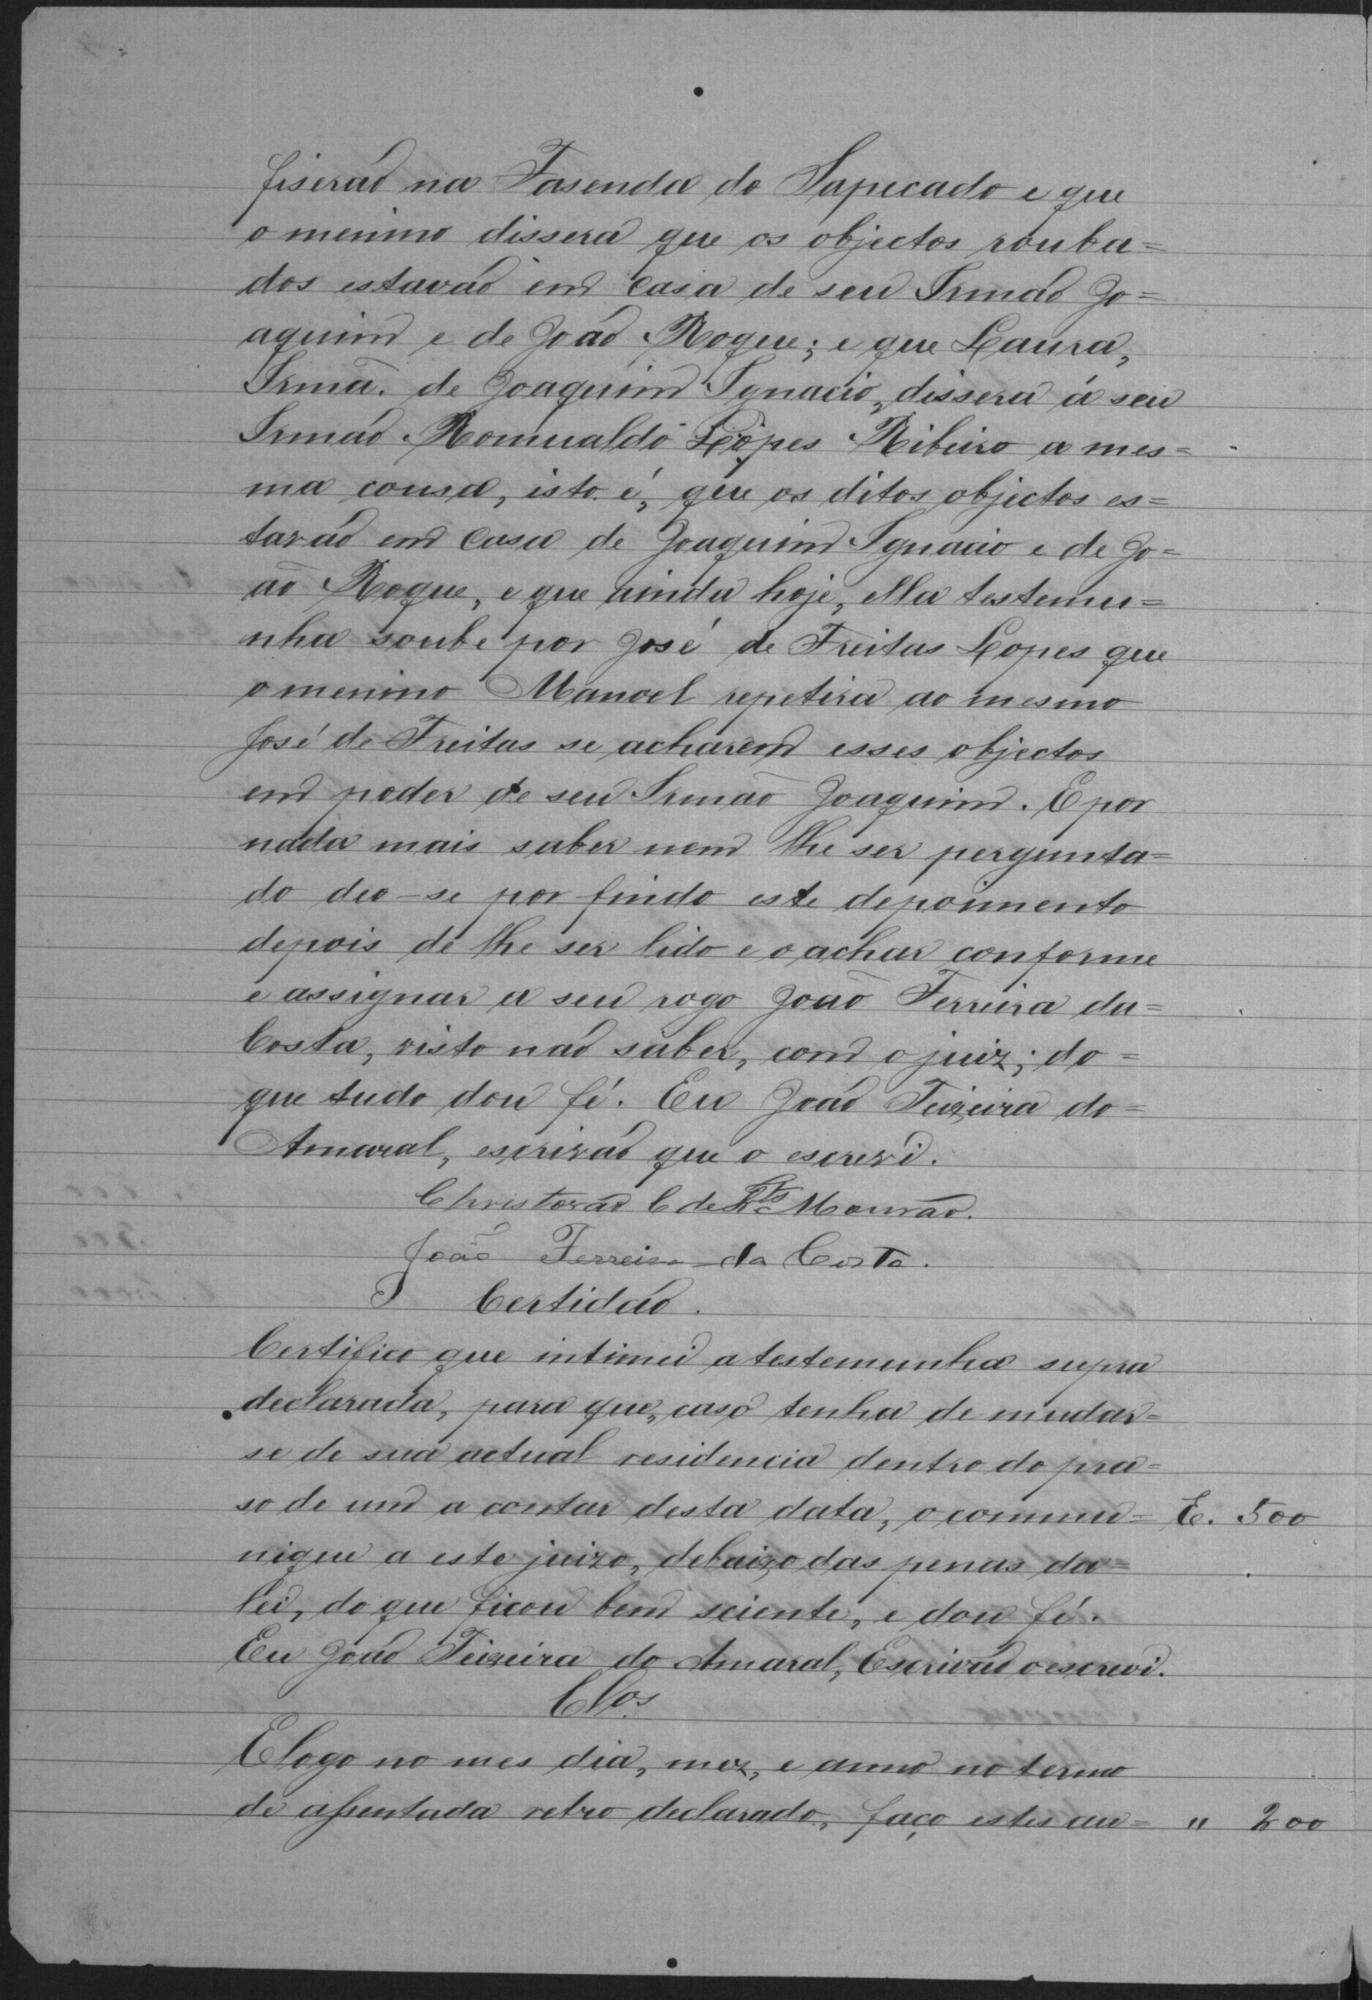 fiserão na Fasenda do Sapecado e que
o menino dissera que os objectos rouba=
dos estavão em casa de seu Irmão Jo=
aquim e de João Roque; e que Laura,
Irmã. de Joaquim Ignacio, dissera á seu
Irmão Romualdo Lopes Ribeiro a mes=
ma cousa, isto é, que os ditos objectos es=
tavão em casa de Joaquim Ignacio e de Jo=
ão Roque, e que ainda hoje, ella testemu=
nha soube por José de Freitas Lopes que
o menino Manoel repetira ao mesmo
José de Freitas se acharem esses objectos
em poder de seu Irmão Joaquim. E por
nada mais saber nem lhe ser pergunta=
do deo-se por findo este depoimento
depois de lhe ser lido e o achar conforme
e assignar a seu rogo João Ferreira da=
Costa, visto não saber, com o juiz; do=
que tudo dou fé. Eu João Teixeira do=
Amaral, escrivão que o escrevi.
Christovão C de Mourão.
João Ferreira da Costa.
Certidão.
Certifico que intimei a testemunha supra
declarada, para que, caso tenha de mudar=
se de sua actual residencia dentro do pra=
so de um a contar desta data, o commu= E. 500
nique a este juizo, debaixo das penas da=
lei, do que ficou bem sciente, e dou fé.
Eu João Teixeira do Amaral, Escrivão o escrevi.
Clos
E logo no mes dia, mez, e anno no termo
de assentada retro declarado, faço estes au= " 200